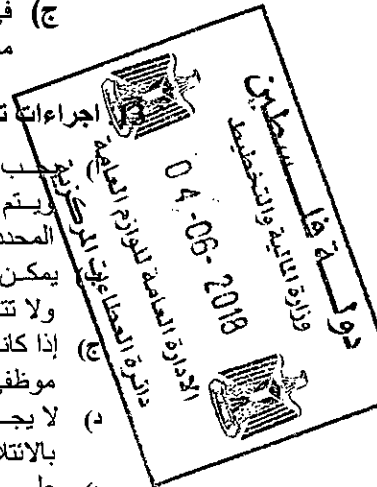 ج) في
اجراءات
يجب
ويتم
المحدد
يمكن
ولا تت
ج) إذا كانت
موظفي
د) لا يجـ
بالائتلا
دولـــة فلـــسطين
وزارة المالية والتخطيط
04-06-2018
الادارة العامة للوازم العامة
دائرة العطاءات المركزية